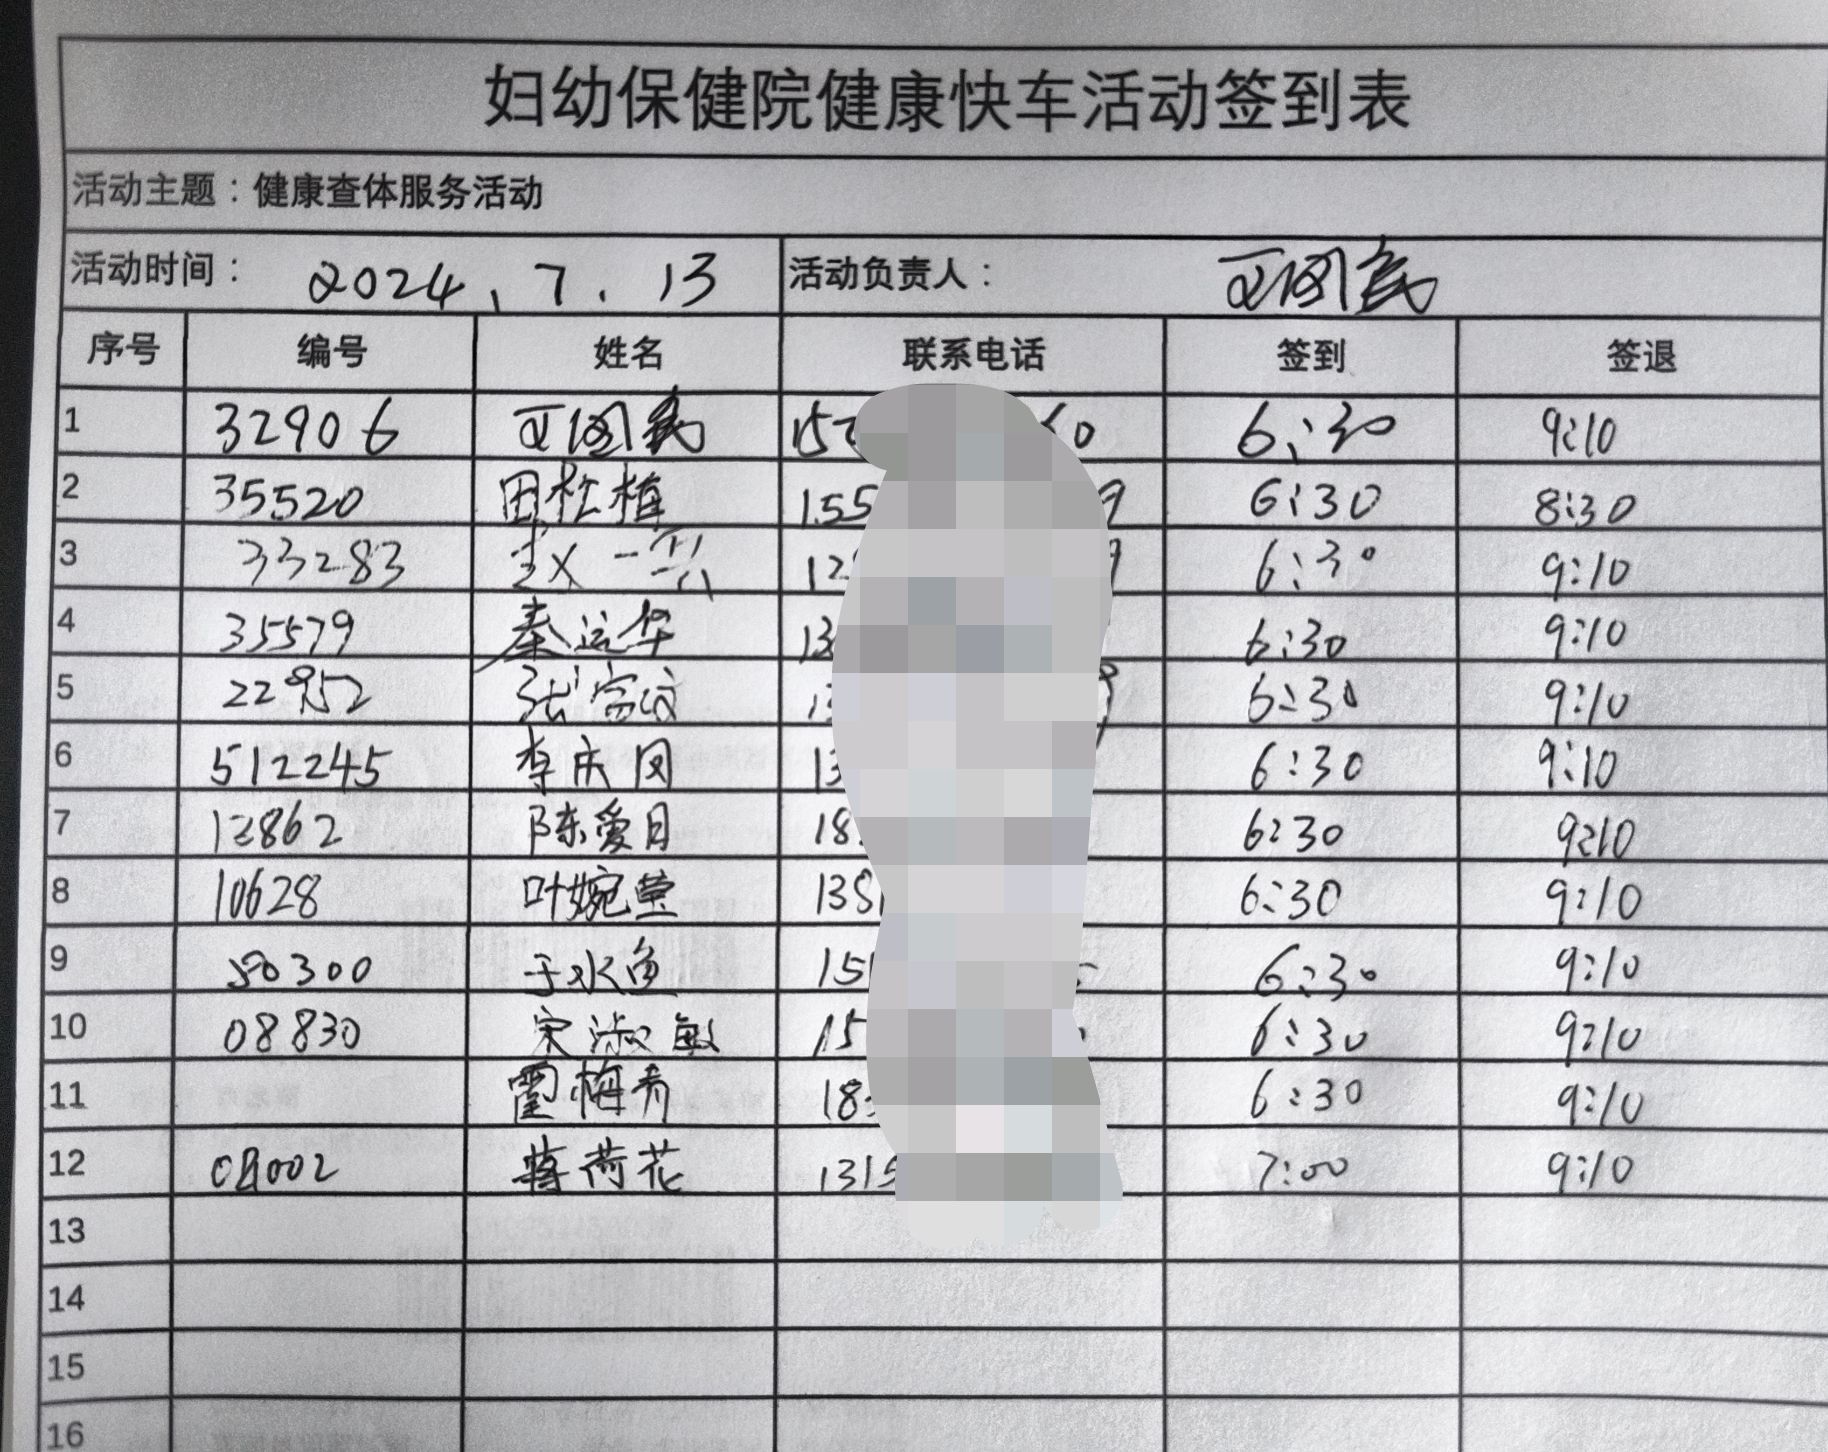 妇幼保健院健康快车活动签到表
活动主题：健康查体服务活动
活动时间： 2024.7.13 活动负责人：
序号 编号 姓名 联系电话 签到 签退
1 32906 6:30 9:10
2 35520 田松植 155 9 6:30 8:30
3 33283 6:30 9:10
4 35579 秦运华 13 6:30 9:10
5 22952 6:30 9:10
6 512245 李庆风 13 6:30 9:10
7 12862 陈爱月 18 6:30 9:10
8 10628 叶婉莹 138 6:30 9:10
9 50300 于水鱼 15 6:30 9:10
10 08830 宋淑敏 15 6:30 9:10
11 霍梅青 18 6:30 9:10
12 蒋荷花 1315 7:00 9:10
13
14
15
16